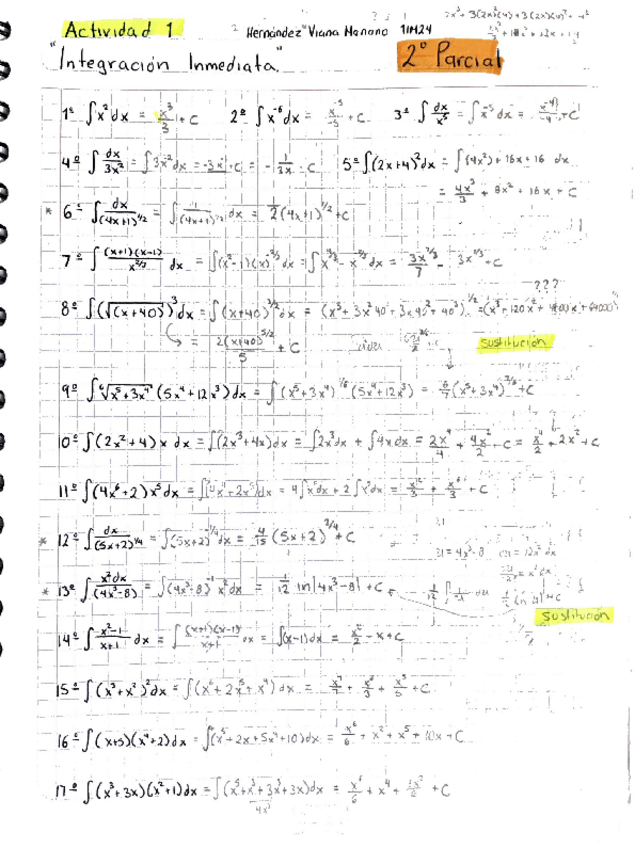 Actividad 1 Hernández Viana 1IM24
"Integración Inmediata" 2° Parcial
1° ∫x²dx = x³/3 + C 2° ∫x⁻⁶dx = x⁻⁵/-5 + C 3° ∫dx/x⁵ = ∫x⁻⁵dx = x⁻⁴/-4 + C
4° ∫dx/3x² = ∫3x⁻²dx = -3x⁻¹ + C = -1/3x + C 5° ∫(2x+4)²dx = ∫(4x²)+16x+16 dx
= 4x³/3 + 8x² + 16x + C
* 6° ∫dx/(4x+1)^1/2 = ∫1/(4x+1)^1/2 dx = 1/2(4x+1)^1/2 + C
7° ∫(x+1)(x-1)/x^2/3 dx = ∫(x²-1)(x)^-2/3 dx = ∫x^4/3 - x^-2/3 dx = 3x^7/3/7 - 3x^1/3 + C
???
8° ∫(√(x+40))³dx = ∫(x+40)^3/2 dx = (x³+3x²40+3x40²+40³)^1/2 = (x³+120x²+4800x+64000)
= 2(x+40)^5/2/5 + C
sustitución
9° ∫⁶√x⁵+3x⁴ (5x⁴+12x³)dx = ∫(x⁵+3x⁴)^1/6 (5x⁴+12x³) = 6/7(x⁵+3x⁴)^7/6 + C
10° ∫(2x²+4)x dx = ∫(2x³+4x)dx = ∫2x³dx + ∫4xdx = 2x⁴/4 + 4x²/2 + C = x⁴/2 + 2x² + C
11° ∫(4x⁶+2)x⁵dx = ∫(4x¹¹+2x⁵)dx = 4∫x¹¹dx + 2∫x⁵dx = x¹²/3 + x⁶/3 + C
* 12° ∫dx/(5x+2)^1/4 = ∫(5x+2)^-1/4 dx = 4/15 (5x+2)^3/4 + C
* 13° ∫x²dx/(4x³-8) = ∫(4x³-8)⁻¹ x²dx = 1/12 ln|4x³-8| + C
sustitución
14° ∫x²-1/x+1 dx = ∫(x+1)(x-1)/x+1 dx = ∫(x-1)dx = x²/2 - x + C
15° ∫(x³+x²)²dx = ∫(x⁶+2x⁵+x⁴)dx = x⁷/7 + x⁶/3 + x⁵/5 + C
16° ∫(x+5)(x⁴+2)dx = ∫(x⁵+2x+5x⁴+10)dx = x⁶/6 + x² + x⁵ + 10x + C
17° ∫(x³+3x)(x²+1)dx = ∫(x⁵+x³+3x³+3x)dx = x⁶/6 + x⁴ + 3x²/2 + C
4x³